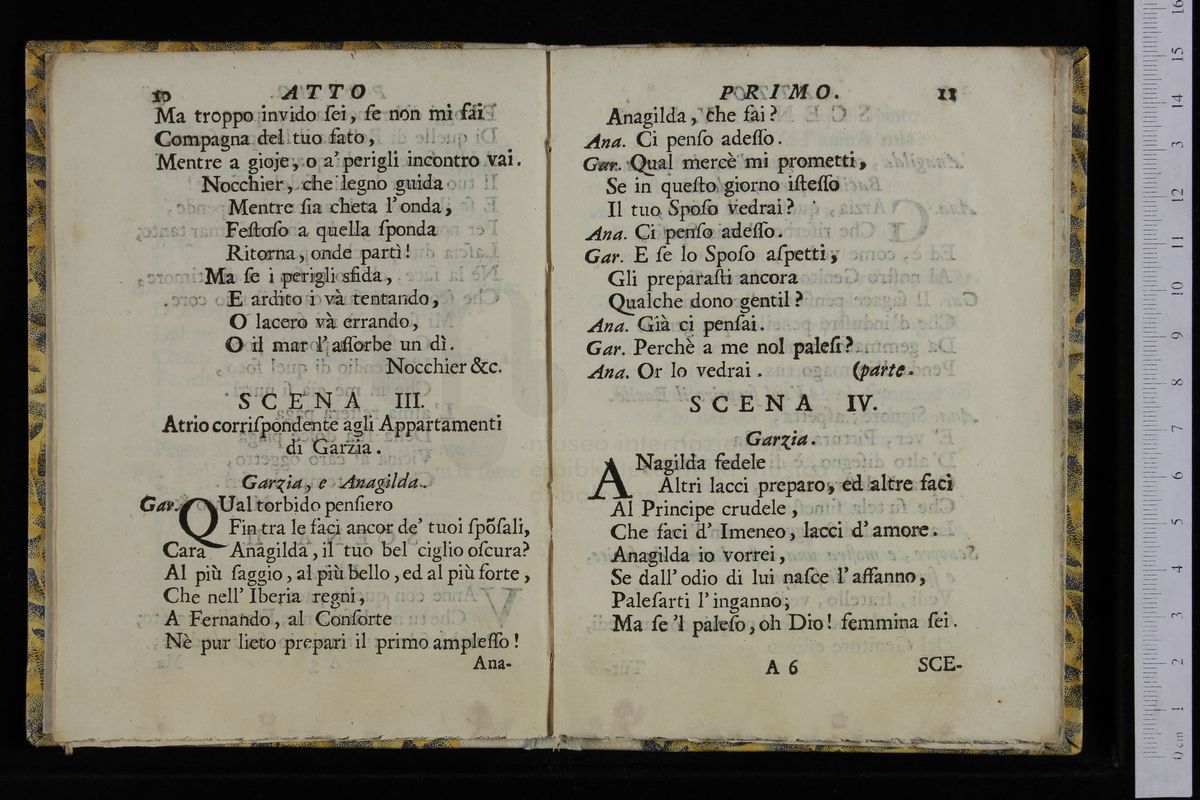 10 ATTO
Ma troppo invido ſei, ſe non mi fai
Compagna del tuo fato,
Mentre a gioje, o a' perigli incontro vai.
Nocchier, che legno guida
Mentre ſia cheta l'onda,
Feſtoſo a quella ſponda
Ritorna, onde partì!
Ma ſe i perigli sfida,
E ardito i và tentando,
O lacero và errando,
O il mar l'aſſorbe un dì.
Nocchier &c.
SCENA III.
Atrio corriſpondente agli Appartamenti
di Garzia.
Garzia, e Anagilda.
Gar. QUal torbido penſiero
Fin tra le faci ancor de' tuoi ſpõſali,
Cara Anagilda, il tuo bel ciglio oſcura?
Al più ſaggio, al più bello, ed al più forte,
Che nell' Iberia regni,
A Fernando, al Conſorte
Nè pur lieto prepari il primo ampleſſo!
Ana-
PRIMO. 11
Anagilda, che fai?
Ana. Ci penſo adeſſo.
Gar. Qual mercè mi prometti,
Se in queſto giorno iſteſſo
Il tuo Spoſo vedrai?
Ana. Ci penſo adeſſo.
Gar. E ſe lo Spoſo aſpetti,
Gli preparaſti ancora
Qualche dono gentil?
Ana. Già ci penſai.
Gar. Perchè a me nol paleſi?
Ana. Or lo vedrai. (parte.
SCENA IV.
Garzia.
ANagilda fedele
Altri lacci preparo, ed altre faci
Al Principe crudele,
Che faci d' Imeneo, lacci d' amore.
Anagilda io vorrei,
Se dall' odio di lui naſce l' affanno,
Paleſarti l' inganno;
Ma ſe 'l paleſo, oh Dio! femmina ſei.
A 6 SCE-